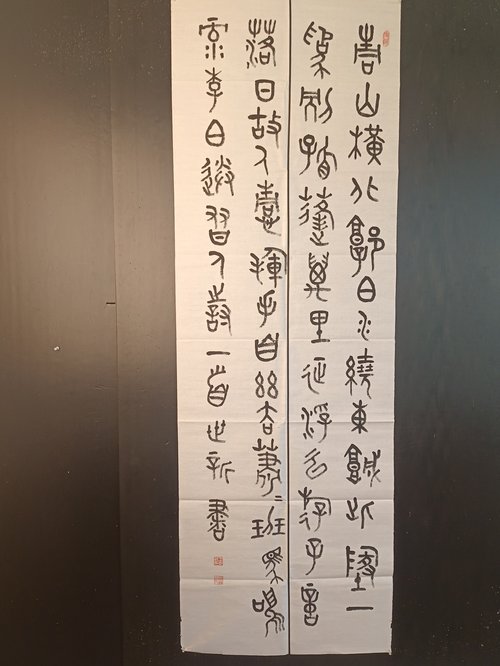 青山橫北郭白水繞東城此地一
為別孤蓬萬里征浮云游子意
落日故人情揮手自茲去蕭〻班馬鳴
录李白送友人詩一首世新書